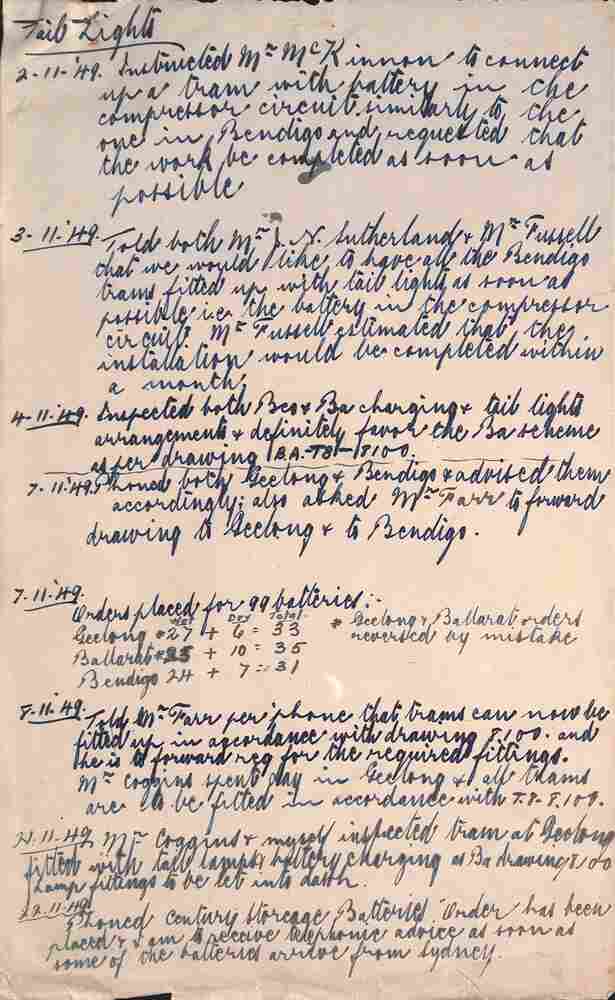 Tail Lights
2-11-'49. Instructed Mr McKinnon to connect
up a tram with battery in the
compressor circuit similarly to the
one in Bendigo and requested that
the work be completed as soon as
possible
3-11-'49. Told both Mr J. N. Sutherland & Mr Fussell
that we would like to have all the Bendigo
trams fitted up with tail lights as soon as
possible i.e. the battery in the compressor
circuit. Mr Fussell estimated that the
installation would be completed within
a month.
4-11-'49. Inspected both Bgo & Ba charging & tail lights
arrangements & definitely favor the Ba scheme
as per drawing B.A.-T8-8100.
7-11-'49. Phoned both Geelong & Bendigo & advised them
accordingly; also asked Mr Farr to forward
drawing to Geelong & to Bendigo.
7-11-'49.
Orders placed for 99 batteries:-
Wet Dry Total
Geelong *27 + 6 = 33 * Geelong & Ballarat orders
Ballarat *25 + 10 = 35 reversed by mistake
Bendigo 24 + 7 = 31
8-11-'49. Told Mr Farr per 'phone that trams can now be
fitted up in accordance with drawing 8100. and
he is to forward req for the required fittings.
Mr Coggins spent day in Geelong & all trams
are to be fitted in accordance with T.8-8100.
21.11.'49 Mr Coggins & myself inspected tram at Geelong
fitted with tail lamps & battery charging as Ba drawing 8100
Lamp fittings to be let into dash.
22.11.'49
Phoned Century Storeage Batteries. Order has been
placed & am to receive telephonic advice as soon as
some of the batteries arrive from Sydney.